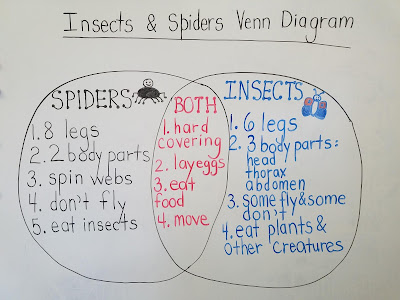 Insects & Spiders Venn Diagram
SPIDERS
1. 8 legs
2. 2 body parts
3. spin webs
4. don't fly
5. eat insects
BOTH
1. hard
covering
2. lay eggs
3. eat
food
4. move
INSECTS
1. 6 legs
2. 3 body parts:
head
thorax
abdomen
3. some fly & some
don't
4. eat plants &
other creatures